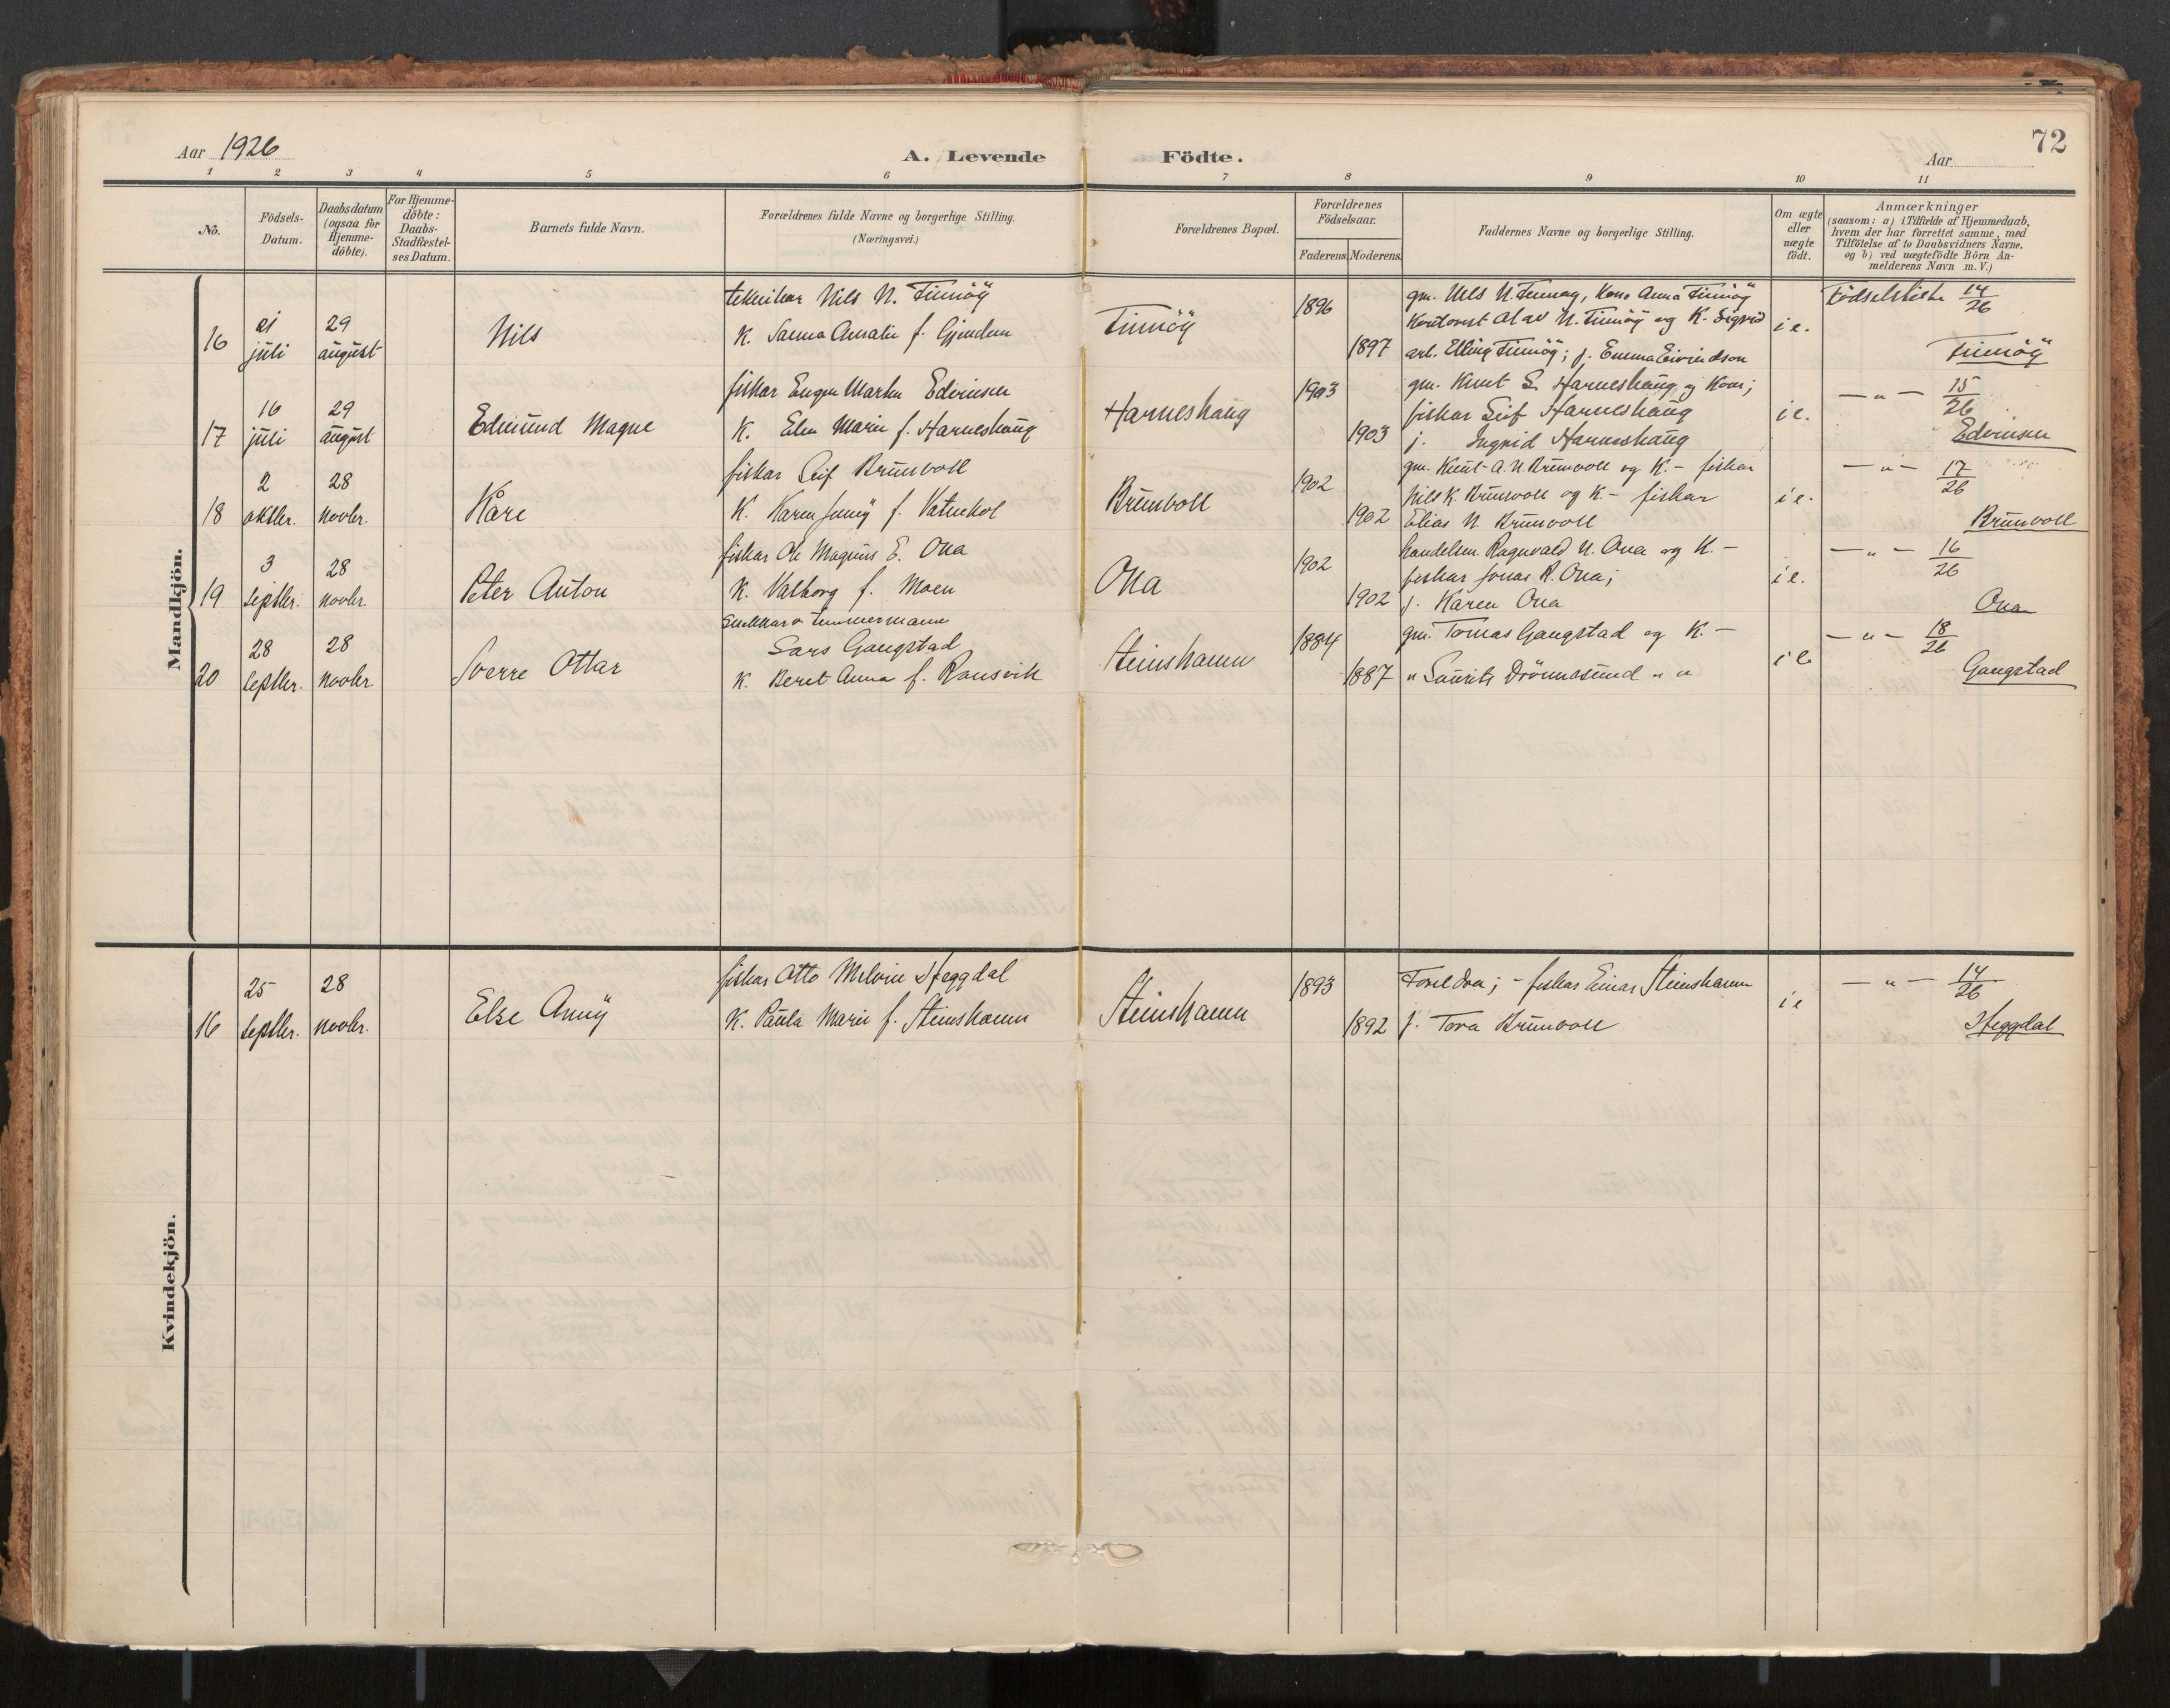 72
Aar 1926
A. Levende Födte.
Aar
1 2 3 4 5 6 7 8 9 10 11
No.
Födsels-Datum.
Daabsdatum (ogsaa for Hjemme-döbte).
For Hjemme-döbte: Daabs-Stadfæstel-ses Datum.
Barnets fulde Navn.
Forældrenes fulde Navne og borgerlige Stilling.
(Næringsvei.)
Forældrenes Bopæl.
Forældrenes Födselsaar.
Faderens. Moderens.
Faddernes Navne og borgerlige Stilling.
Om ægte eller uægte födt.
Anmærkninger
(saasom: a) i Tilfælde af Hjemmedaab,
hvem der har forrettet samme, med
Tilföielse af to Daabsvidners Navne,
og b) ved uægtefödte Börn An-
melderens Navn m. V.)
Mandkjön.
16 juli 29 august
Nils
tekniker Nils N. Finnöy
K. Sanna Amalie f. Gjendem
Finnöy
1896
1897
gm. Nils N. Finnöy, Kona Anna Finnöy
Kontorist Olav N. Finnöy og K. Sigrid
arb. Elling Finnöy; j. Emma Eivindson
i e.
Födselsliste 14/26
Finnöy
17 16 juli 29 august
Edmund Magne
fiskar Eugen Martin Edvinsen
K. Elen Marie f. Harneshaug
Harneshaug
1903
1903
gm. Knut S. Harneshaug og Kona;
fiskar Leif Harneshaug
j. Ingrid Harneshaug
i e.
— " — 15/26
Edvinsen
18 2 oktbr. 28 novbr.
Kåre
fiskar Leif Brunvoll
K. Karen Jenny f. Vatnehol
Brunvoll
1902
1902
gm. Knut A. N. Brunvoll og K. – fiskar
Nils K. Brunvoll og K – fiskar
Elias N. Brunvoll
i e.
— " — 17/26
Brunvoll
19 3 septbr. 28 novbr.
Peter Anton
fiskar Ole Magnus E. Ona
K. Valborg f. Moen
Ona
1902
1902
handelsm. Ragnvald N. Ona og K. –
fiskar Jonas R. Ona;
j. Karen Ona
i e.
— " — 16/26
Ona
20 28 septbr. 28 novbr.
Sverre Ottar
Snekkar o tømmermann
Lars Gangstad
K. Beret Anna f. Ransvik
Steinshamn
1884
1887
gm. Tomas Gangstad og K. –
" Laurits Drönnesund " "
i e
— " — 18/26
Gangstad
Kvindekjön.
16 25 septbr. 28 novbr.
Else Anny
fiskar Otto Melvin Heggdal
K. Paula Marie f. Steinshamn
Steinshamn
1893
1892
Foreldra; – fiskar Einar Steinshamn
j. Tora Brunvoll
i e
— " — 14/26
Heggdal